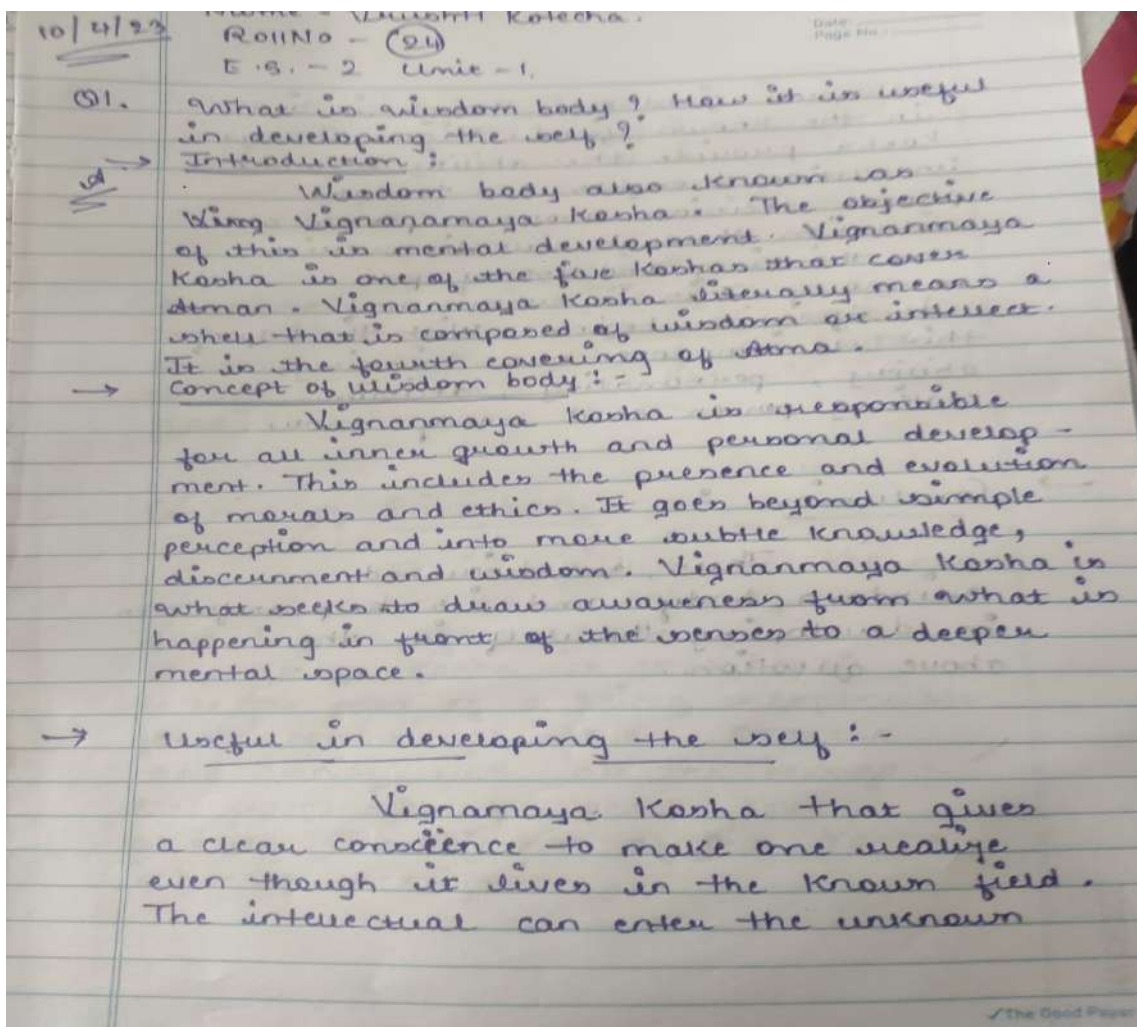 10/4/23
Kotecha.
Date:
Page No.:
Roll No - (24)
E.S. - 2 Unit - 1.
Q1. What is wisdom body? How it is useful
in developing the self?
→ Introduction :
A
Wisdom body also known as
Vignanamaya Kosha. The objective
of this is mental development. Vignanmaya
Kosha is one of the five Koshas that cover
Atman. Vignanmaya Kosha literally means a
shell that is composed of wisdom or intellect.
It is the fourth covering of Atma.
→ Concept of wisdom body : -
Vignanmaya Kosha is responsible
for all inner growth and personal develop -
ment. This includes the presence and evolution
of morals and ethics. It goes beyond simple
perception and into more subtle knowledge,
discernment and wisdom. Vignanmaya Kosha is
what seeks to draw awareness from what is
happening in front of the senses to a deeper
mental space.
→ Useful in developing the self : -
Vignamaya Kosha that gives
a clear conscience to make one realize
even though it lives in the known field.
The intellectual can enter the unknown
The Good Paper